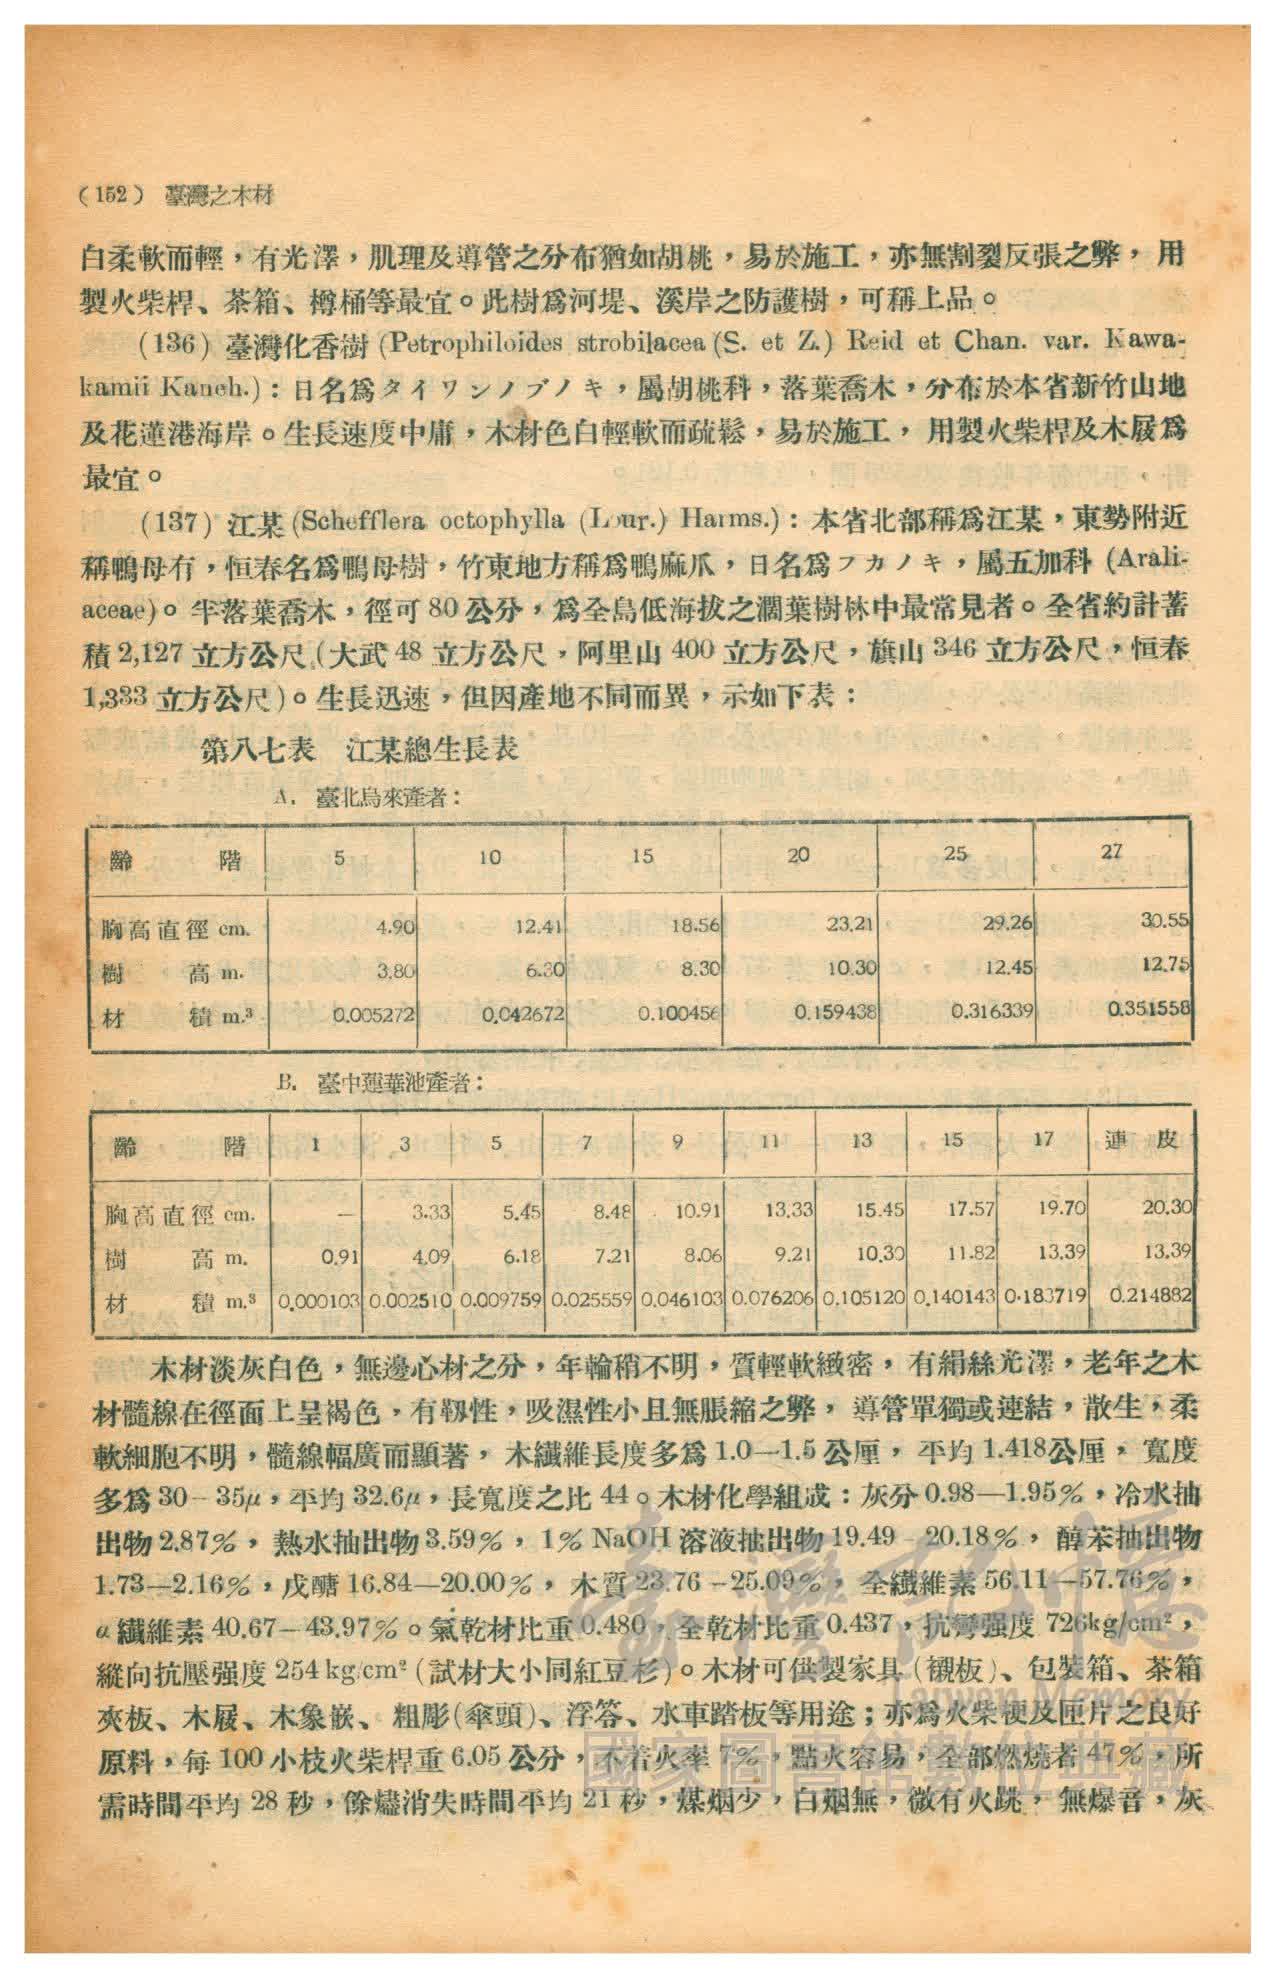 (152) 臺灣之木材
白柔軟而輕，有光澤，肌理及導管之分布猶如胡桃，易於施工，亦無割裂反張之弊，用
製火柴桿、茶箱、樽桶等最宜。此樹爲河堤、溪岸之防護樹，可稱上品。
(136) 臺灣化香樹 (Petrophiloides strobilacea (S. et Z.) Reid et Chan. var. Kawa-
kamii Kaneh.)：日名爲タイワンノブノキ，屬胡桃科，落葉喬木，分布於本省新竹山地
及花蓮港海岸。生長速度中庸，木材色白輕軟而疏鬆，易於施工，用製火柴桿及木屐爲
最宜。
(137) 江某 (Schefflera octophylla (Lour.) Harms.)：本省北部稱爲江某，東勢附近
稱鴨母有，恒春名爲鴨母樹，竹東地方稱爲鴨麻爪，日名爲フカノキ，屬五加科 (Arali-
aceae)。半落葉喬木，徑可 80 公分，爲全島低海拔之濶葉樹林中最常見者。全省約計蓄
積 2,127 立方公尺 (大武 48 立方公尺，阿里山 400 立方公尺，旗山 346 立方公尺，恒春
1,333 立方公尺)。生長迅速，但因產地不同而異，示如下表：
第八七表 江某總生長表
A. 臺北烏來產者：
齡階 5 10 15 20 25 27
胸高直徑 cm. 4.90 12.41 18.56 23.21 29.26 30.55
樹高 m. 3.80 6.30 8.30 10.30 12.45 12.75
材積 m.³ 0.005272 0.042672 0.100456 0.159438 0.316339 0.351558
B. 臺中蓮華池產者：
齡階 1 3 5 7 9 11 13 15 17 連皮
胸高直徑 cm. — 3.33 5.45 8.48 10.91 13.33 15.45 17.57 19.70 20.30
樹高 m. 0.91 4.09 6.18 7.21 8.06 9.21 10.30 11.82 13.39 13.39
材積 m.³ 0.000103 0.002510 0.009759 0.025559 0.046103 0.076206 0.105120 0.140143 0.183719 0.214882
木材淡灰白色，無邊心材之分，年輪稍不明，質輕軟緻密，有絹絲光澤，老年之木
材髓線在徑面上呈褐色，有靱性，吸濕性小且無脹縮之弊，導管單獨或連結，散生，柔
軟細胞不明，髓線幅廣而顯著，木纖維長度多爲 1.0—1.5 公厘，平均 1.418公厘，寬度
多爲 30—35μ，平均 32.6μ，長寬度之比 44。木材化學組成：灰分 0.98—1.95%，冷水抽
出物 2.87%，熱水抽出物 3.59%，1% NaOH 溶液抽出物 19.49—20.18%，醇苯抽出物
1.73—2.16%，戊醣 16.84—20.00%，木質 23.76—25.09%，全纖維素 56.11—57.76%，
α纖維素 40.67—43.97%。氣乾材比重 0.480，全乾材比重 0.437，抗彎强度 726kg/cm²，
縱向抗壓强度 254 kg/cm² (試材大小同紅豆杉)。木材可供製家具 (襯板)、包裝箱、茶箱
夾板、木屐、木象嵌、粗彫 (傘頭)、浮筶、水車踏板等用途；亦爲火柴梗及匣片之良好
原料，每 100 小枝火柴桿重 6.05 公分，不着火率 7%，點火容易，全部燃燒者 47%，所
需時間平均 28 秒，餘燼消失時間平均 21 秒，煤烟少，白烟無，微有火跳，無爆音，灰
臺灣記憶
Taiwan Memory
國家圖書館數位典藏